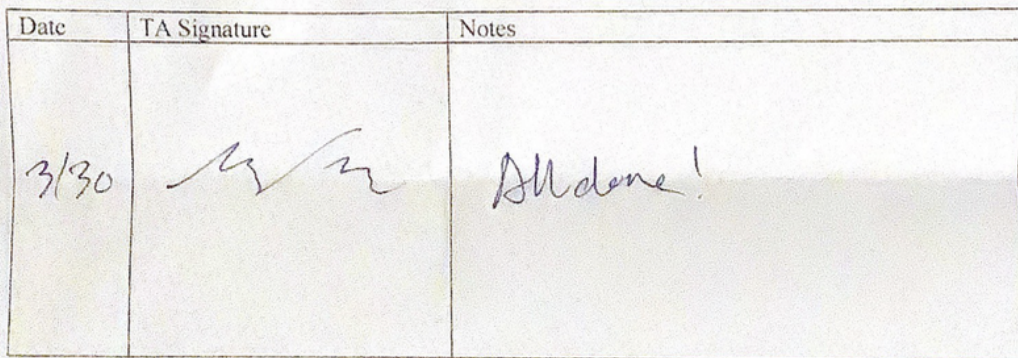 Date TA Signature Notes
3/30 All done!